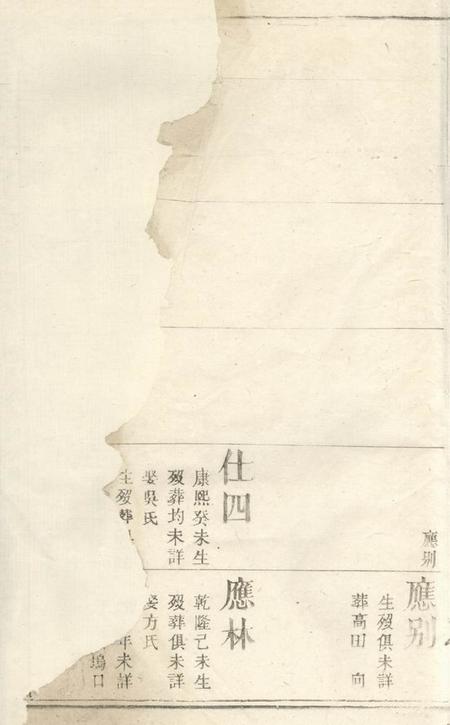 應別
仕四
康熙癸未生
歿葬均未詳
娶吳氏
生歿葬
應別
生歿俱未詳
葬高田 向
應林
乾隆己未生
歿葬俱未詳
娶方氏
年未詳
塢口